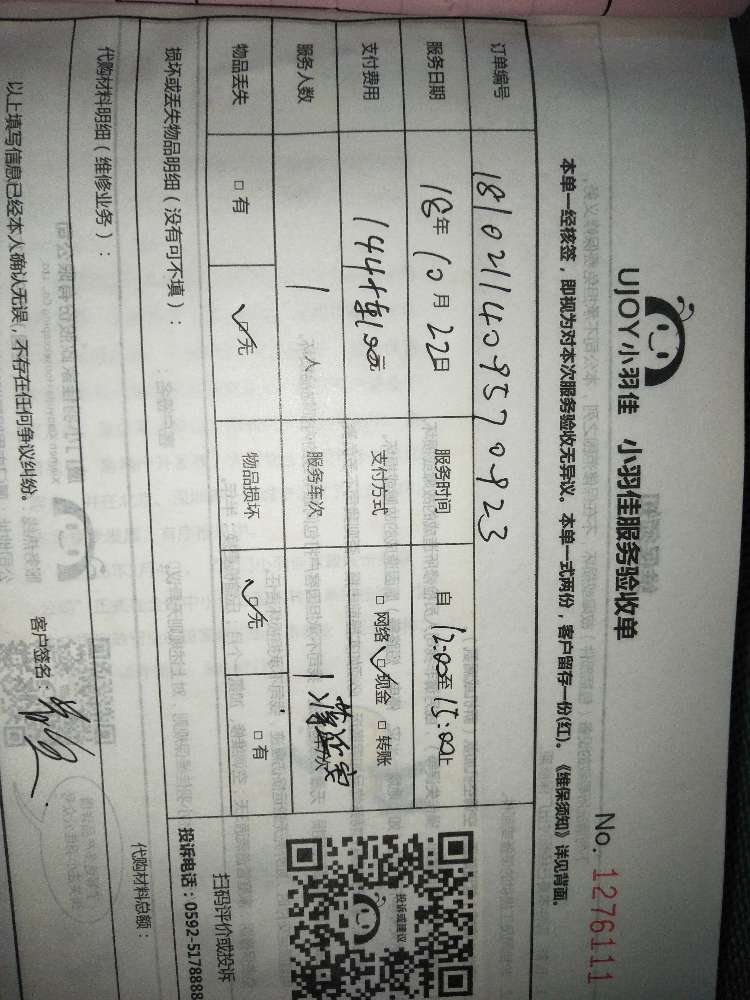 UJOY小羽佳 小羽佳服务验收单
No. 1276111
本单一经核签，即视为对本次服务验收无异议。本单一式两份，客户留存一份(红)。《维保须知》详见背面。
订单编号 1810211409570923
服务日期 18年10月22日 服务时间 自 12:00至15:00止
支付费用 144+车100元 支付方式 □网络 ☑现金 □转账
服务人数 1 人 服务车次 1 车/次
物品丢失 □有 ☑无 物品损坏 ☑无 □有
损坏或丢失物品明细（没有可不填）：
投诉或建议
扫码评价或投诉
投诉电话：0592-5178888
代购材料明细（维修业务）：
代购材料总额：
以上填写信息已经本人确认无误，不存在任何争议纠纷。
客户签名：